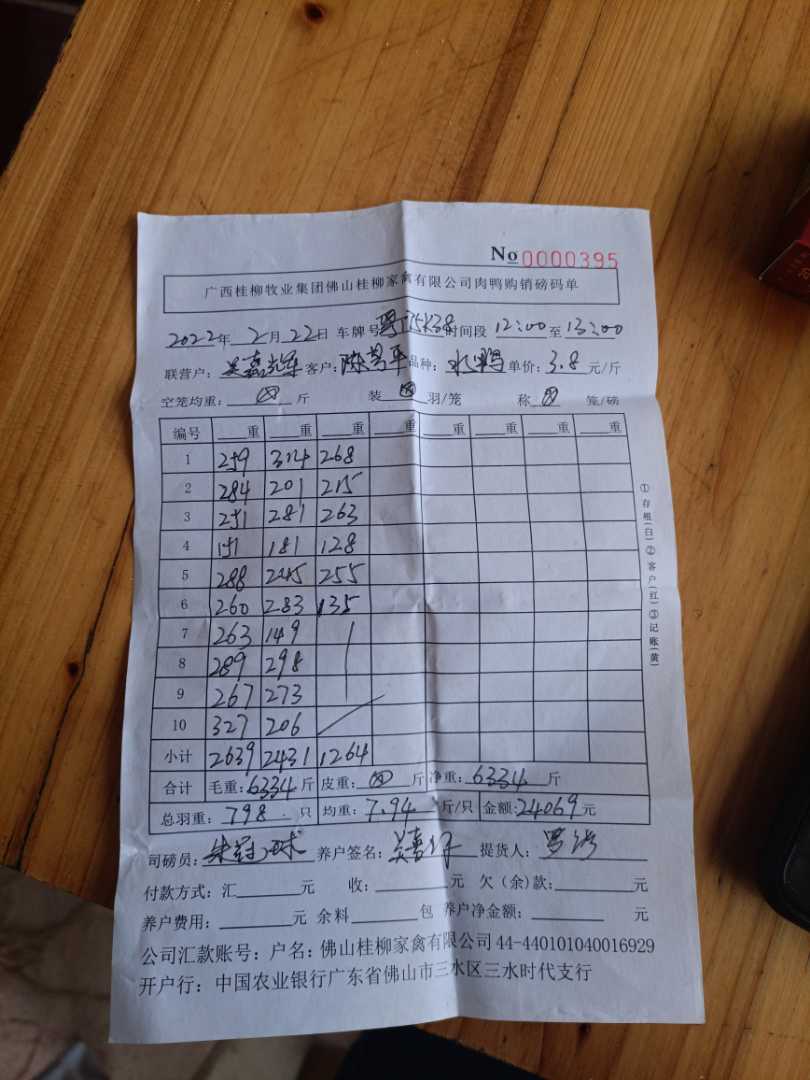 No 0000395
广西桂柳牧业集团佛山桂柳家禽有限公司肉鸭购销磅码单
2022年 2月 22日 车牌号 时间段 12:00 至 13:00
联营户: 客户: 陈昌平 品种: 水鸭 单价: 3.8 元/斤
空笼均重: 斤 装 羽/笼 称 笼/磅
编号 重 重 重 重 重 重 重
1 259 314 268
2 284 201 215
3 251 281 263
4 151 181 128
5 288 245 255
6 260 283 135
7 263 149
8 289 298
9 267 273
10 327 206
小计 2639 2431 1264
合计 毛重: 6334 斤 皮重: 斤 净重: 6334 斤
总羽重: 798 只 均重: 7.94 斤/只 金额: 24069 元
司磅员: 养户签名: 提货人:
付款方式: 汇 元 收: 元 欠(余)款: 元
养户费用: 元 余料 包 养户净金额: 元
公司汇款账号: 户名: 佛山桂柳家禽有限公司 44-440101040016929
开户行: 中国农业银行广东省佛山市三水区三水时代支行
①存根(白)②客户(红)③记账(黄)